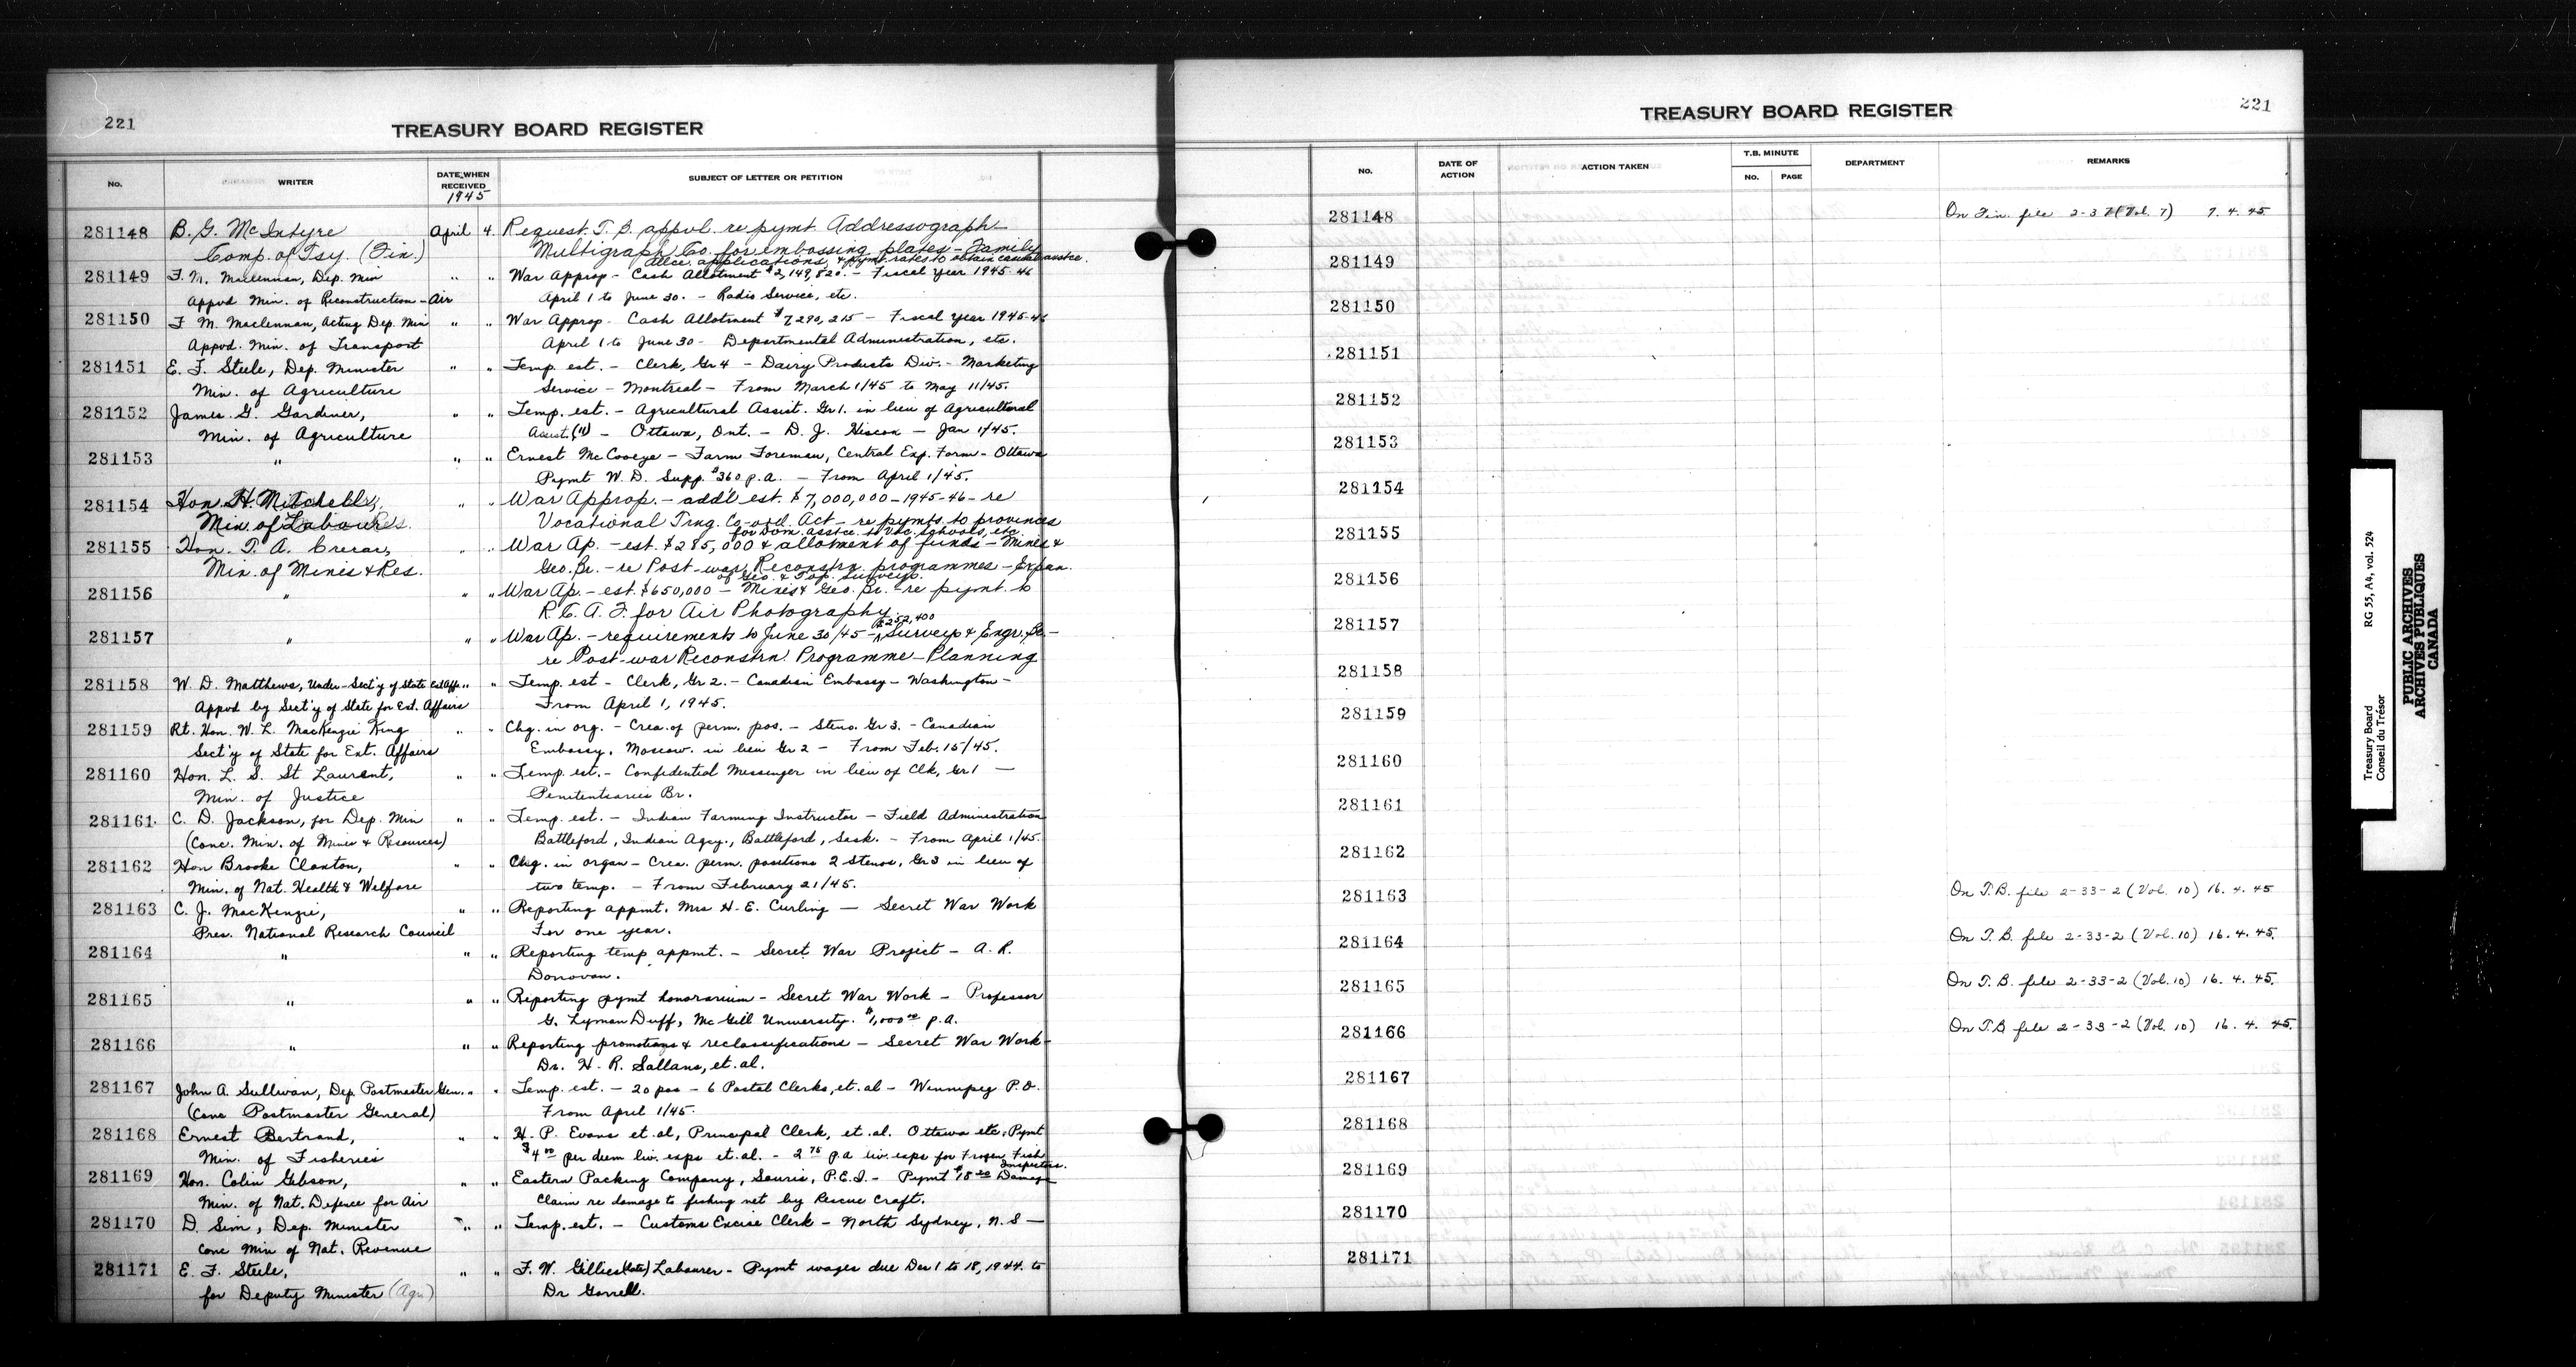 221
TREASURY BOARD REGISTER
No. WRITER DATE WHEN RECEIVED SUBJECT OF LETTER OR PETITION
1945
281148 B. G. McIntyre April 4. Request T. B. appvl. re pymt. Addressograph
Comp. of Tsy. (Fin.) Multigraph Co. for embossing plates - Family
Allce. applications, & pymt. rates to obtain casual asstce.
281149 F. M. Maclennan, Dep. Min " " War Approp - Cash Allotment $2,149,820. - Fiscal year 1945-46
Appvd Min. of Reconstruction - Air April 1 to June 30. - Radio Service, etc.
281150 F M. Maclennan, Acting Dep. Min " " War Approp - Cash Allotment $7,290,215 - Fiscal year 1945-46
Appvd. Min. of Transport April 1 to June 30 - Departmental Administration, etc.
281151 E. F. Steele, Dep. Minister " " Temp. est. - Clerk, Gr 4 - Dairy Products Div. - Marketing
Min. of Agriculture Service - Montreal - From March 1/45 to May 11/45.
281152 James G. Gardiner, " " Temp. est. - Agricultural Assist. Gr 1. in lieu of Agricultural
Min. of Agriculture Assist. (11) - Ottawa, Ont. - D. J. Hiscox - Jan 1/45.
281153 " " " Ernest McCooeye - Farm Foreman, Central Exp. Farm - Ottawa
Pymt W. D. Supp. $360 p.a. - From April 1/45.
281154 Hon. H. Mitchell, " " War Approp. - add'l est. $7,000,000 - 1945-46 - re
Min. of Labour Vocational Trng. Co-ord. Act - re pymts. to provinces
for Dom. asstce. to Voc. schools, etc.
281155 Hon. T. A. Crerar, " " War Ap. - est. $285,000 & allotment of funds - Mines &
Min. of Mines & Res. Geo. Br. - re Post-war Reconstrn. programmes - Expan.
of Geo. & Top. Surveys.
281156 " " " War Ap. - est. $650,000 - Mines & Geo. Br. - re pymt. to
R. C. A. F. for Air Photography.
$252,400
281157 " " " War Ap. - requirements to June 30/45 - Surveys & Engr. Br. -
re Post-war Reconstrn. Programme - Planning
281158 W. D. Matthews, Under-Sect'y of State Ext Aff. " " Temp. est - Clerk, Gr 2. - Canadian Embassy - Washington -
Appvd by Sect'y of State for Ext. Affairs From April 1, 1945.
281159 Rt. Hon. W. L. MacKenzie King " " Chg. in org. - Crea. of perm. pos. - Steno. Gr 3. - Canadian
Sect'y of State for Ext. Affairs Embassy, Moscow. in lieu Gr 2 - From Feb. 15/45.
281160 Hon. L. S. St Laurent, " " Temp. est. - Confidential Messenger in lieu of Clk, Gr 1 -
Min. of Justice Penitentiaries Br.
281161 C. D. Jackson, for Dep. Min " " Temp. est. - Indian Farming Instructor - Field Administration
(Conc. Min. of Mines & Resources) Battleford, Indian Agcy., Battleford, Sask. - From April 1/45.
281162 Hon Brooke Claxton, " " Chg. in organ - Crea. perm. positions 2 Stenos, Gr 3 in lieu of
Min. of Nat. Health & Welfare two temp. - From February 21/45.
281163 C. J. MacKenzie, " " Reporting appmt. Mrs H. E. Curling - Secret War Work
Pres. National Research Council For one year.
281164 " " " Reporting temp appmt. - Secret War Project - A. R.
Donovan.
281165 " " " Reporting pymt honorarium - Secret War Work - Professor
G. Lyman Duff, McGill University. $1,000.00 p.a.
281166 " " " Reporting promotions & reclassifications - Secret War Work -
Dr. H. R. Sallans, et. al.
281167 John A. Sullivan, Dep. Postmaster Gen. " " Temp. est. - 20 pos - 6 Postal Clerks, et. al - Winnipeg P.O.
(Conc Postmaster General) From April 1/45.
281168 Ernest Bertrand, " " H. P. Evans et. al, Principal Clerk, et. al. Ottawa etc, Pymt
Min. of Fisheries $4.00 per diem liv. exps et. al. - 2 75 p.a liv. exps for Frozen Fish
Inspectors.
281169 Hon. Colin Gibson, " " Eastern Packing Company, Souris, P.E.I. - Pymt Damage
Min. of Nat. Defence for Air Claim re damage to fishing net by Rescue Craft.
281170 D. Sim, Dep. Minister " " Temp. est. - Customs Excise Clerk - North Sydney, N.S -
Conc Min of Nat. Revenue
281171 E. F. Steele, " " F. W. Gillies (late) Labourer - Pymt wages due Dec 1 to 18, 1944. to
for Deputy Minister (Agr) Dr Gorrell.
221
TREASURY BOARD REGISTER
No. DATE OF ACTION ACTION TAKEN T.B. MINUTE No. PAGE DEPARTMENT REMARKS
281148 On Fin. file (Vol. 7) 7. 4. 45
281149
281150
281151
281152
281153
281154
281155
281156
281157
281158
281159
281160
281161
281162
281163 On T.B. file 2-33-2 (Vol. 10) 16. 4. 45
281164 On T.B. file 2-33-2 (Vol. 10) 16. 4. 45.
281165 On T.B. file 2-33-2 (Vol. 10) 16. 4. 45.
281166 On T.B file 2-33-2 (Vol. 10) 16. 4. 45.
281167
281168
281169
281170
281171
Treasury Board RG 55, A4, vol. 524
Conseil du Trésor
PUBLIC ARCHIVES
ARCHIVES PUBLIQUES
CANADA